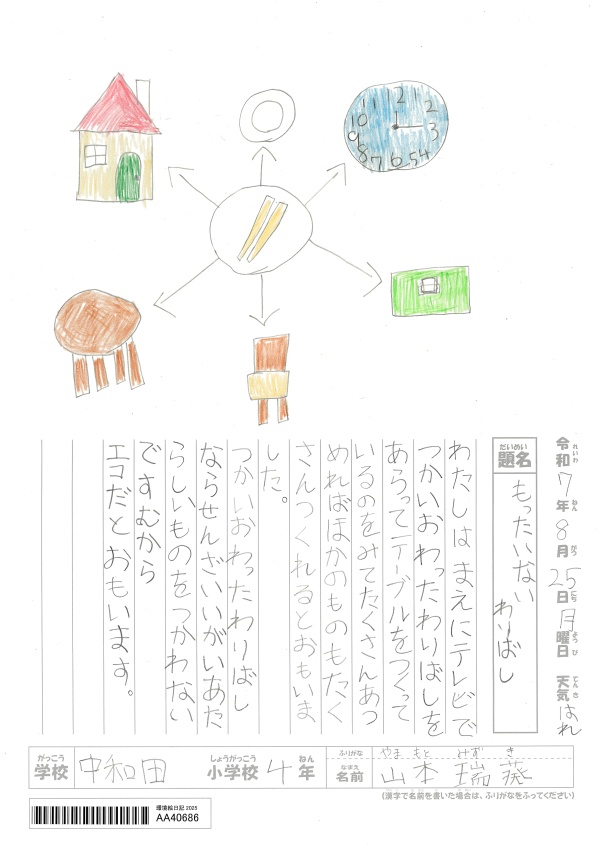 12
1
2
3
4
5
6
7
8
9
10
11
令和7年8月25日月曜日 天気はれ
れいわ ねん がつ にち ようび てんき
だいめい
題名 もったいない わりばし
わたしは まえにテレビで
つかいおわったわりばしを
あらってテーブルをつくって
いるのをみてたくさんあつ
めればほかのものもたく
さんつくれるとおもいま
した。
つかいおわったわりばし
ならせんざいいがいあた
らしいものをつかわない
ですむから
エコだとおもいます。
がっこう
学校 中和田
しょうがっこう ねん
小学校 4年
ふりがな やまもと みずき
なまえ
名前 山本 瑞葵
(漢字で名前を書いた場合は、ふりがなをふってください)
環境絵日記 2025
AA40686